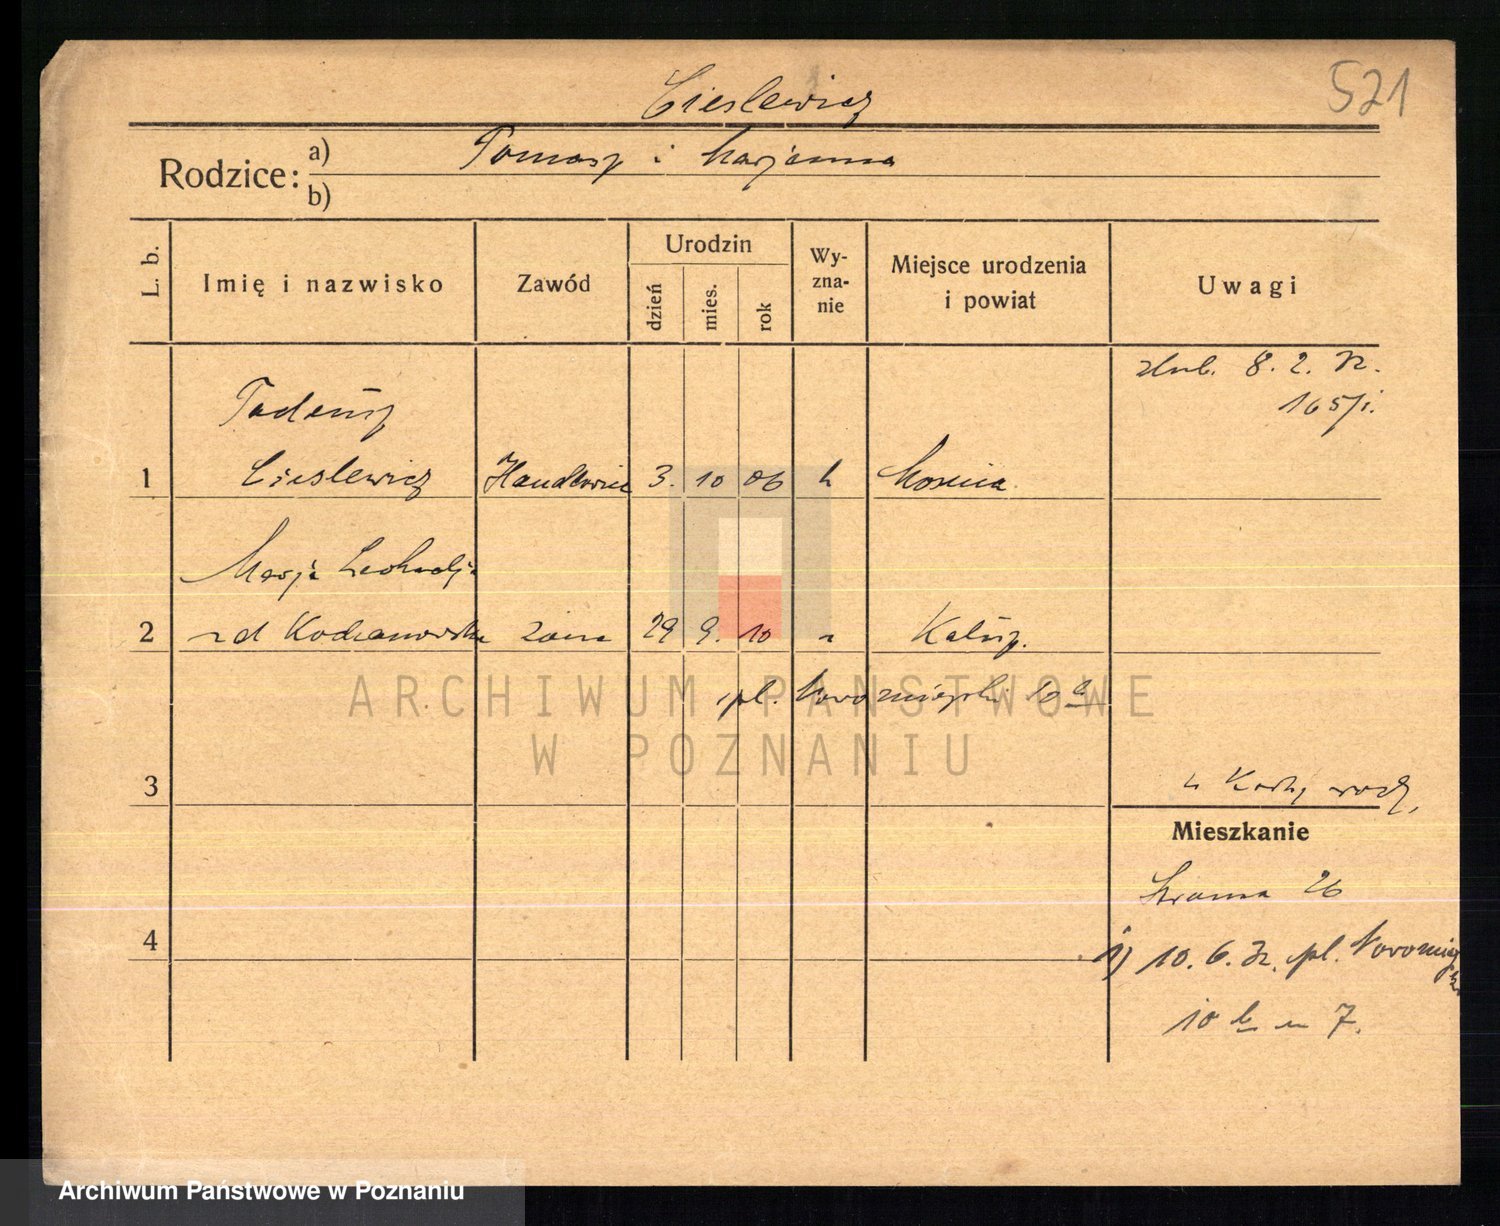 521
Cieslewicz
Rodzice:
a) Tomasz i Marjanna
b)
L. b.
Imię i nazwisko
Zawód
Urodzin
dzień
mies.
rok
Wy-
zna-
nie
Miejsce urodzenia
i powiat
Uwagi
ślub. 8. 2. 32.
165/i.
Tadeusz
1 Cieslewicz Handlowiec 3. 10 06 k Mosina
Marja Leokadja
2 zd Kochanowska żona 29 9. 10 " Kalisz.
pl. Nowomiejski 10 b
3
z Karty rodz.
Mieszkanie
Strama 26
4
1) 10. 6. 32. pl. Nowomiejski
10 b m 7.
ARCHIWUM PAŃSTWOWE
W POZNANIU
Archiwum Państwowe w Poznaniu